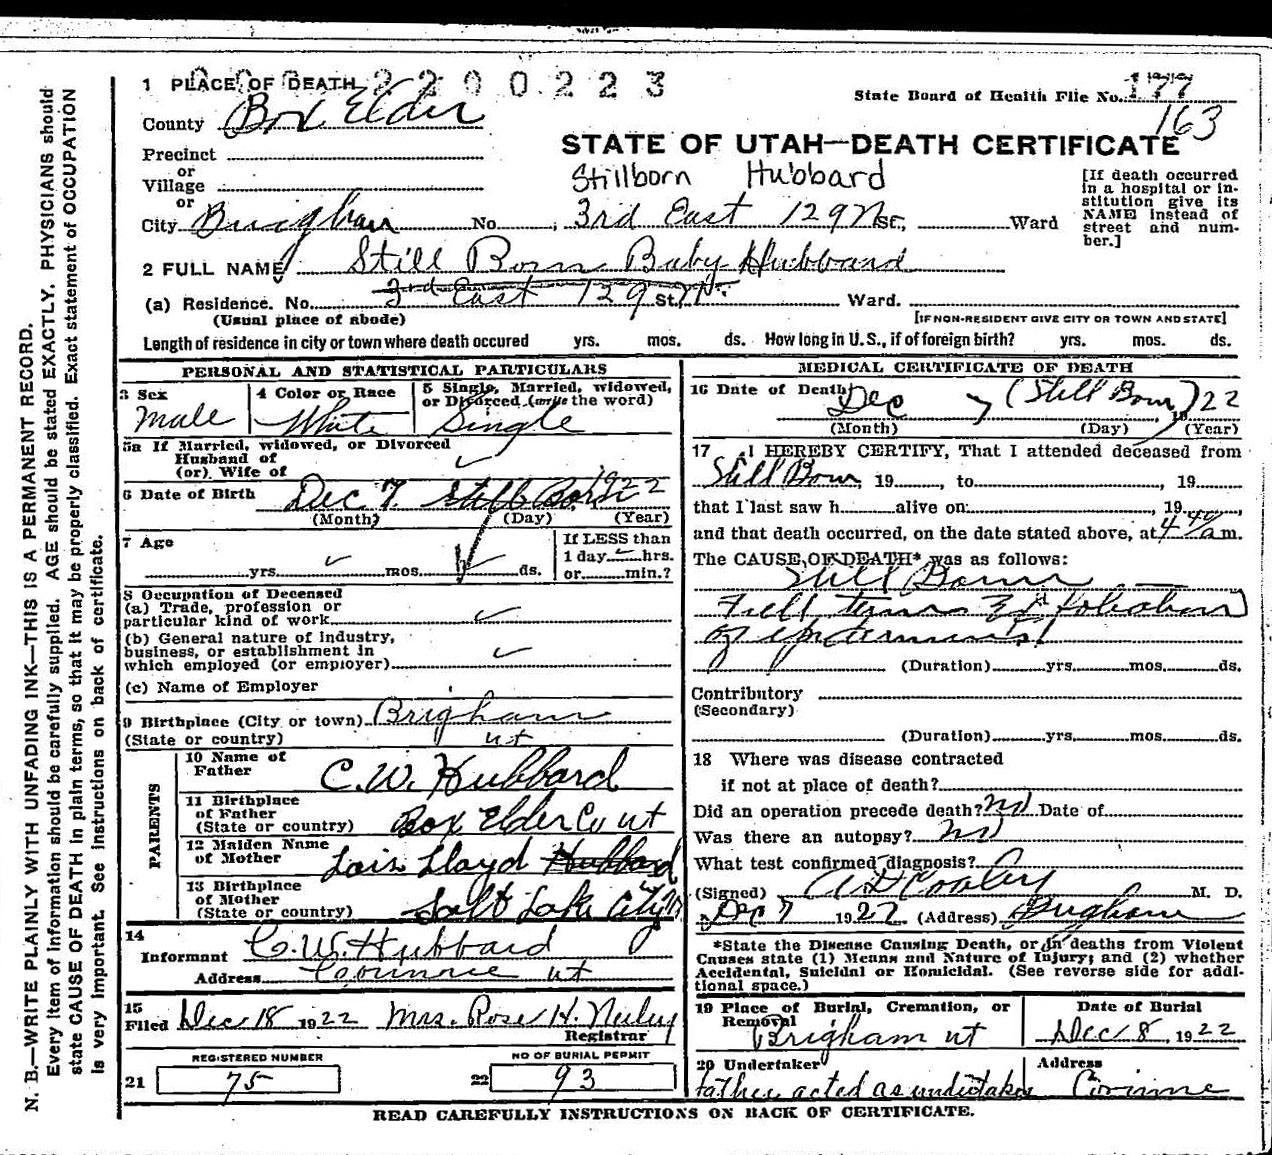 1 PLACE OF DEATH 2200223
State Board of Health File No. 177
163
County Box Elder
STATE OF UTAH—DEATH CERTIFICATE
Precinct
or
Village
or
Stillborn Hubbard
[If death occurred in a hospital or in-
stitution give its NAME instead of street and num-
ber.]
City Brigham No. , 3rd East 129 N St., Ward
2 FULL NAME Still Born Baby Hubbard
(a) Residence. No. 3rd East 129 St. N. Ward.
(Usual place of abode)
[IF NON-RESIDENT GIVE CITY OR TOWN AND STATE]
Length of residence in city or town where death occured yrs. mos. ds. How long in U. S., if of foreign birth? yrs. mos. ds.
PERSONAL AND STATISTICAL PARTICULARS
3 Sex
Male
4 Color or Race
White
5 Single, Married, widowed,
or Divorced (write the word)
Single
5a If Married, widowed, or Divorced
Husband of
(or) Wife of
6 Date of Birth Dec 7. Still Born 1922
(Month) (Day) (Year)
7 Age
yrs. mos. ds.
If LESS than
1 day hrs.
or min.?
8 Occupation of Deceased
(a) Trade, profession or
particular kind of work
(b) General nature of industry,
business, or establishment in
which employed (or employer)
(c) Name of Employer
9 Birthplace (City or town) Brigham
(State or country) ut
PARENTS
10 Name of
Father C. W. Hubbard
11 Birthplace
of Father
(State or country) Box Elder Co ut
12 Maiden Name
of Mother Lois Lloyd Hubbard
13 Birthplace
of Mother
(State or country) Salt Lake City
14
Informant C. W. Hubbard
Address Corinne ut
15
Filed Dec 18 1922 Mrs. Rose H. Neeley
Registrar
REGISTERED NUMBER
21 75
NO OF BURIAL PERMIT
22 93
MEDICAL CERTIFICATE OF DEATH
16 Date of Death Dec 7 (Still Born) 1922
(Month) (Day) (Year)
17 I HEREBY CERTIFY, That I attended deceased from
Still Born, 19 , to , 19
that I last saw h alive on , 19 ,
and that death occurred, on the date stated above, at 4 40 a m.
The CAUSE OF DEATH* was as follows:
Still Born
Full term Exfoliation
of epidermis
(Duration) yrs. mos. ds.
Contributory
(Secondary)
(Duration) yrs. mos. ds.
18 Where was disease contracted
if not at place of death?
Did an operation precede death? No Date of
Was there an autopsy? No
What test confirmed diagnosis?
(Signed) A D Cooley M. D.
Dec 7 1922 (Address) Brigham
*State the Disease Causing Death, or in deaths from Violent
Causes state (1) Means and Nature of Injury; and (2) whether
Accidental, Suicidal or Homicidal. (See reverse side for addi-
tional space.)
19 Place of Burial, Cremation, or
Removal
Brigham ut
Date of Burial
Dec 8, 1922
20 Undertaker
father acted as undertaker
Address
Corinne
READ CAREFULLY INSTRUCTIONS ON BACK OF CERTIFICATE.
N. B.—WRITE PLAINLY WITH UNFADING INK—THIS IS A PERMANENT RECORD.
Every item of information should be carefully supplied. AGE should be stated EXACTLY. PHYSICIANS should
state CAUSE OF DEATH in plain terms, so that it may be properly classified. Exact statement of OCCUPATION
is very important. See instructions on back of certificate.